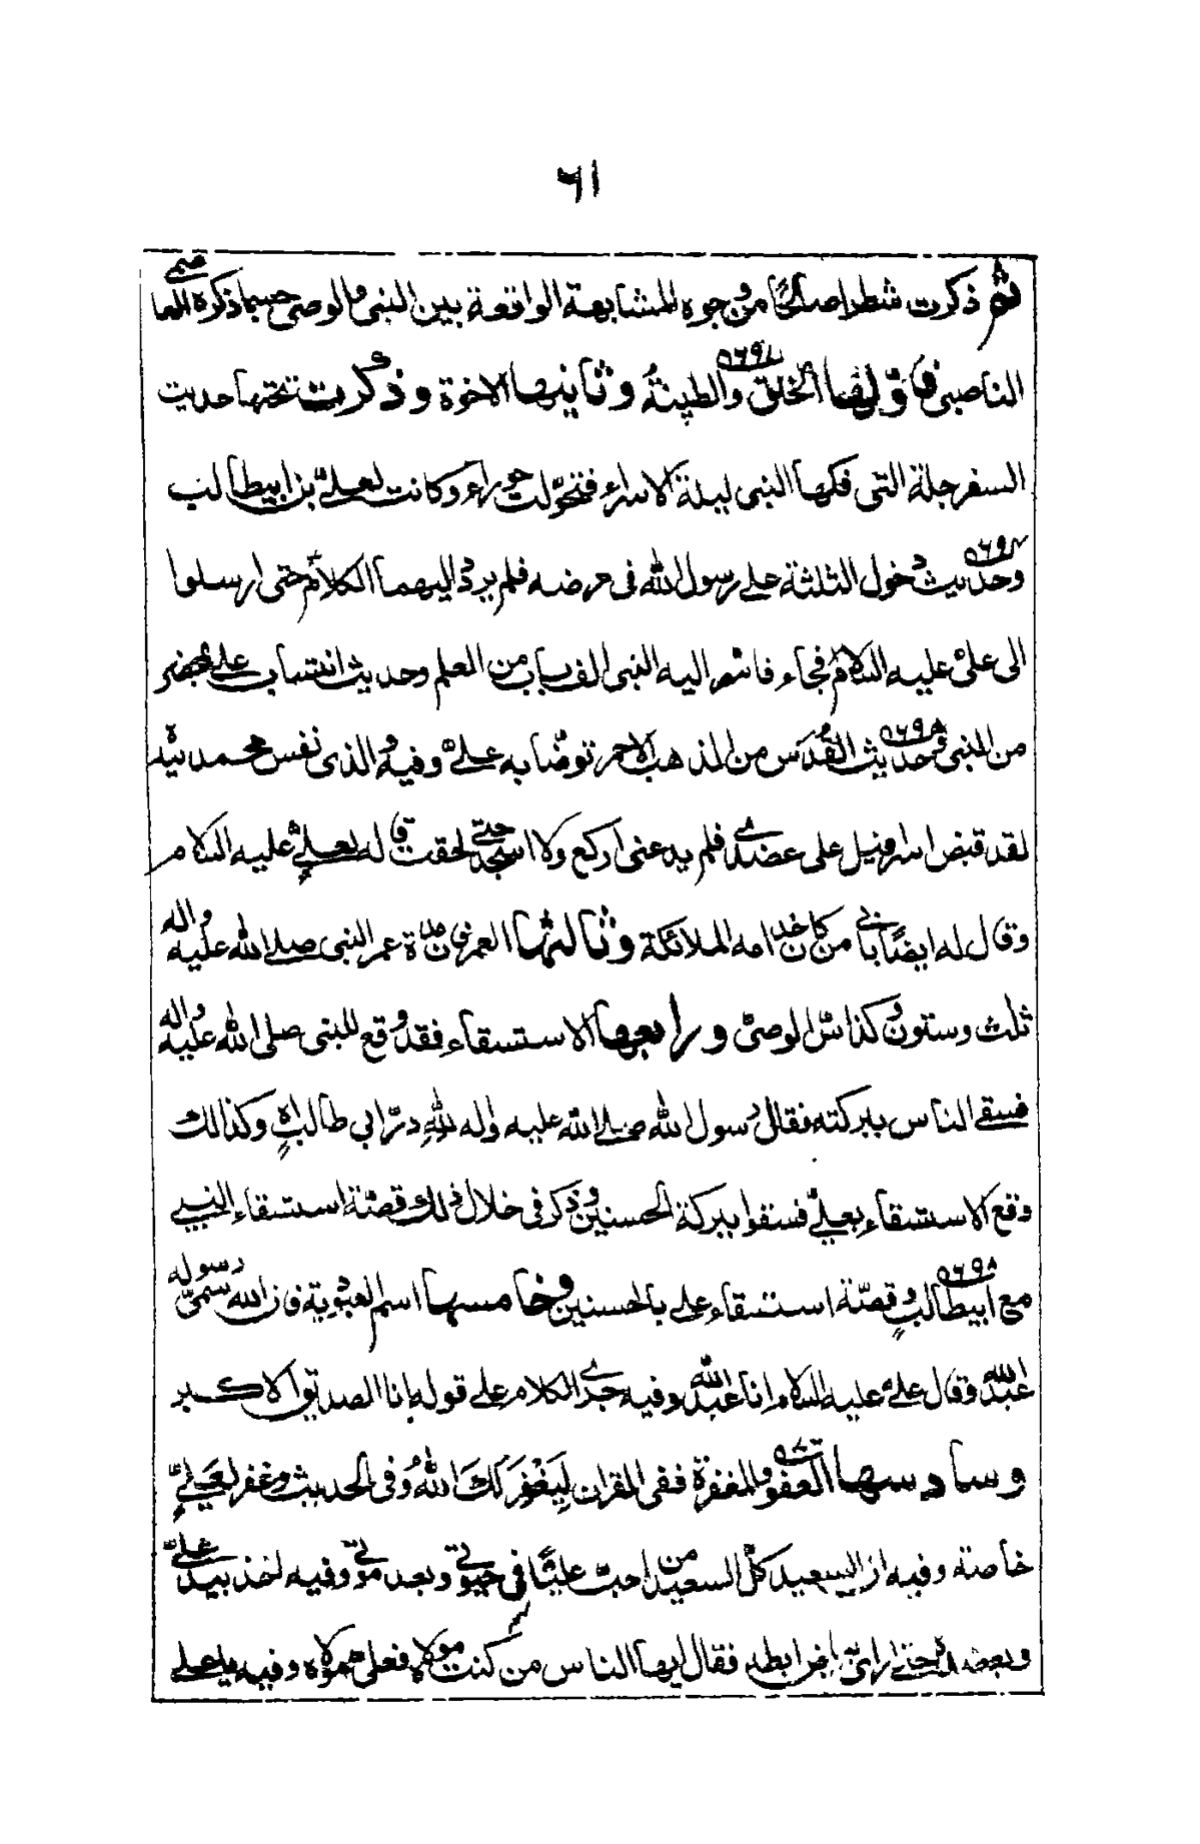 ٦١
ثم ذكرت شطرا صالحًا من وجوه المشابهة الواقعة بين النبي والوصي حسبما ذكره العاصمي
الناصبي فاوّلها الخلق والطينة وثانيها الاخوة وذكرت تحتها حديث
السفرجلة التي فكها النبي ليلة الاسراء فتحوّلت حوراء وكانت لعليّ بن ابيطالب
وحديث دخول الثلثة على رسول الله في مرضه فلم يردّ اليهما الكلام حتى ارسلوا
الى علي عليه السلام فجاء فاسر اليه النبي الف باب من العلم وحديث انتساب علي بمحضر
من النبي في حديث القُدَس من الذهب الاحمر توضّا به عليّ وفيه والذي نفس محمد بيده
لقد قبض اسرافيل على عضدي فلم يدعني اركع ولا اسجد حتى لحقت قاله لعليّ عليه السلام
وقال له ايضًا من كان خدامه الملائكة وثالثها العمر فان مدة عمر النبي صلى الله عليه واله
ثلث وستون وكذا سنّ الوصيّ ورابعها الاستسقاء فقد وقع للنبي صلى الله عليه واله
فسقي الناس ببركته فقال رسول الله صلى الله عليه واله للهِ درّ ابي طالب اه وكذالك
وقع الاستسقاء بعليّ فسقوا ببركة الحسنين وذكر في خلال ذلك قصّة استسقاء النبي
مع ابيطالب وقصّة استسقاء علي بالحسنين وخامسها اسم العبودية فان الله سمّى رسوله
عبد الله وقال علي عليه السلام انا عبد الله وفيه جرى الكلام على قوله انا الصديق الاكبر
وسادسها العفو والمغفرة ففي القران لِيَغْفِرَ لَكَ اللهُ وفي الحديث وغفر لعليٍّ
خاصة وفيه ان السعيد كلّ السعيد من احبّ عليًّا في حيوتي وبعد موتي وفيه اخذ بيد عليّ
حتى فقال ايها الناس من كنت مولاه فعلي مولاه وفيه يا علي